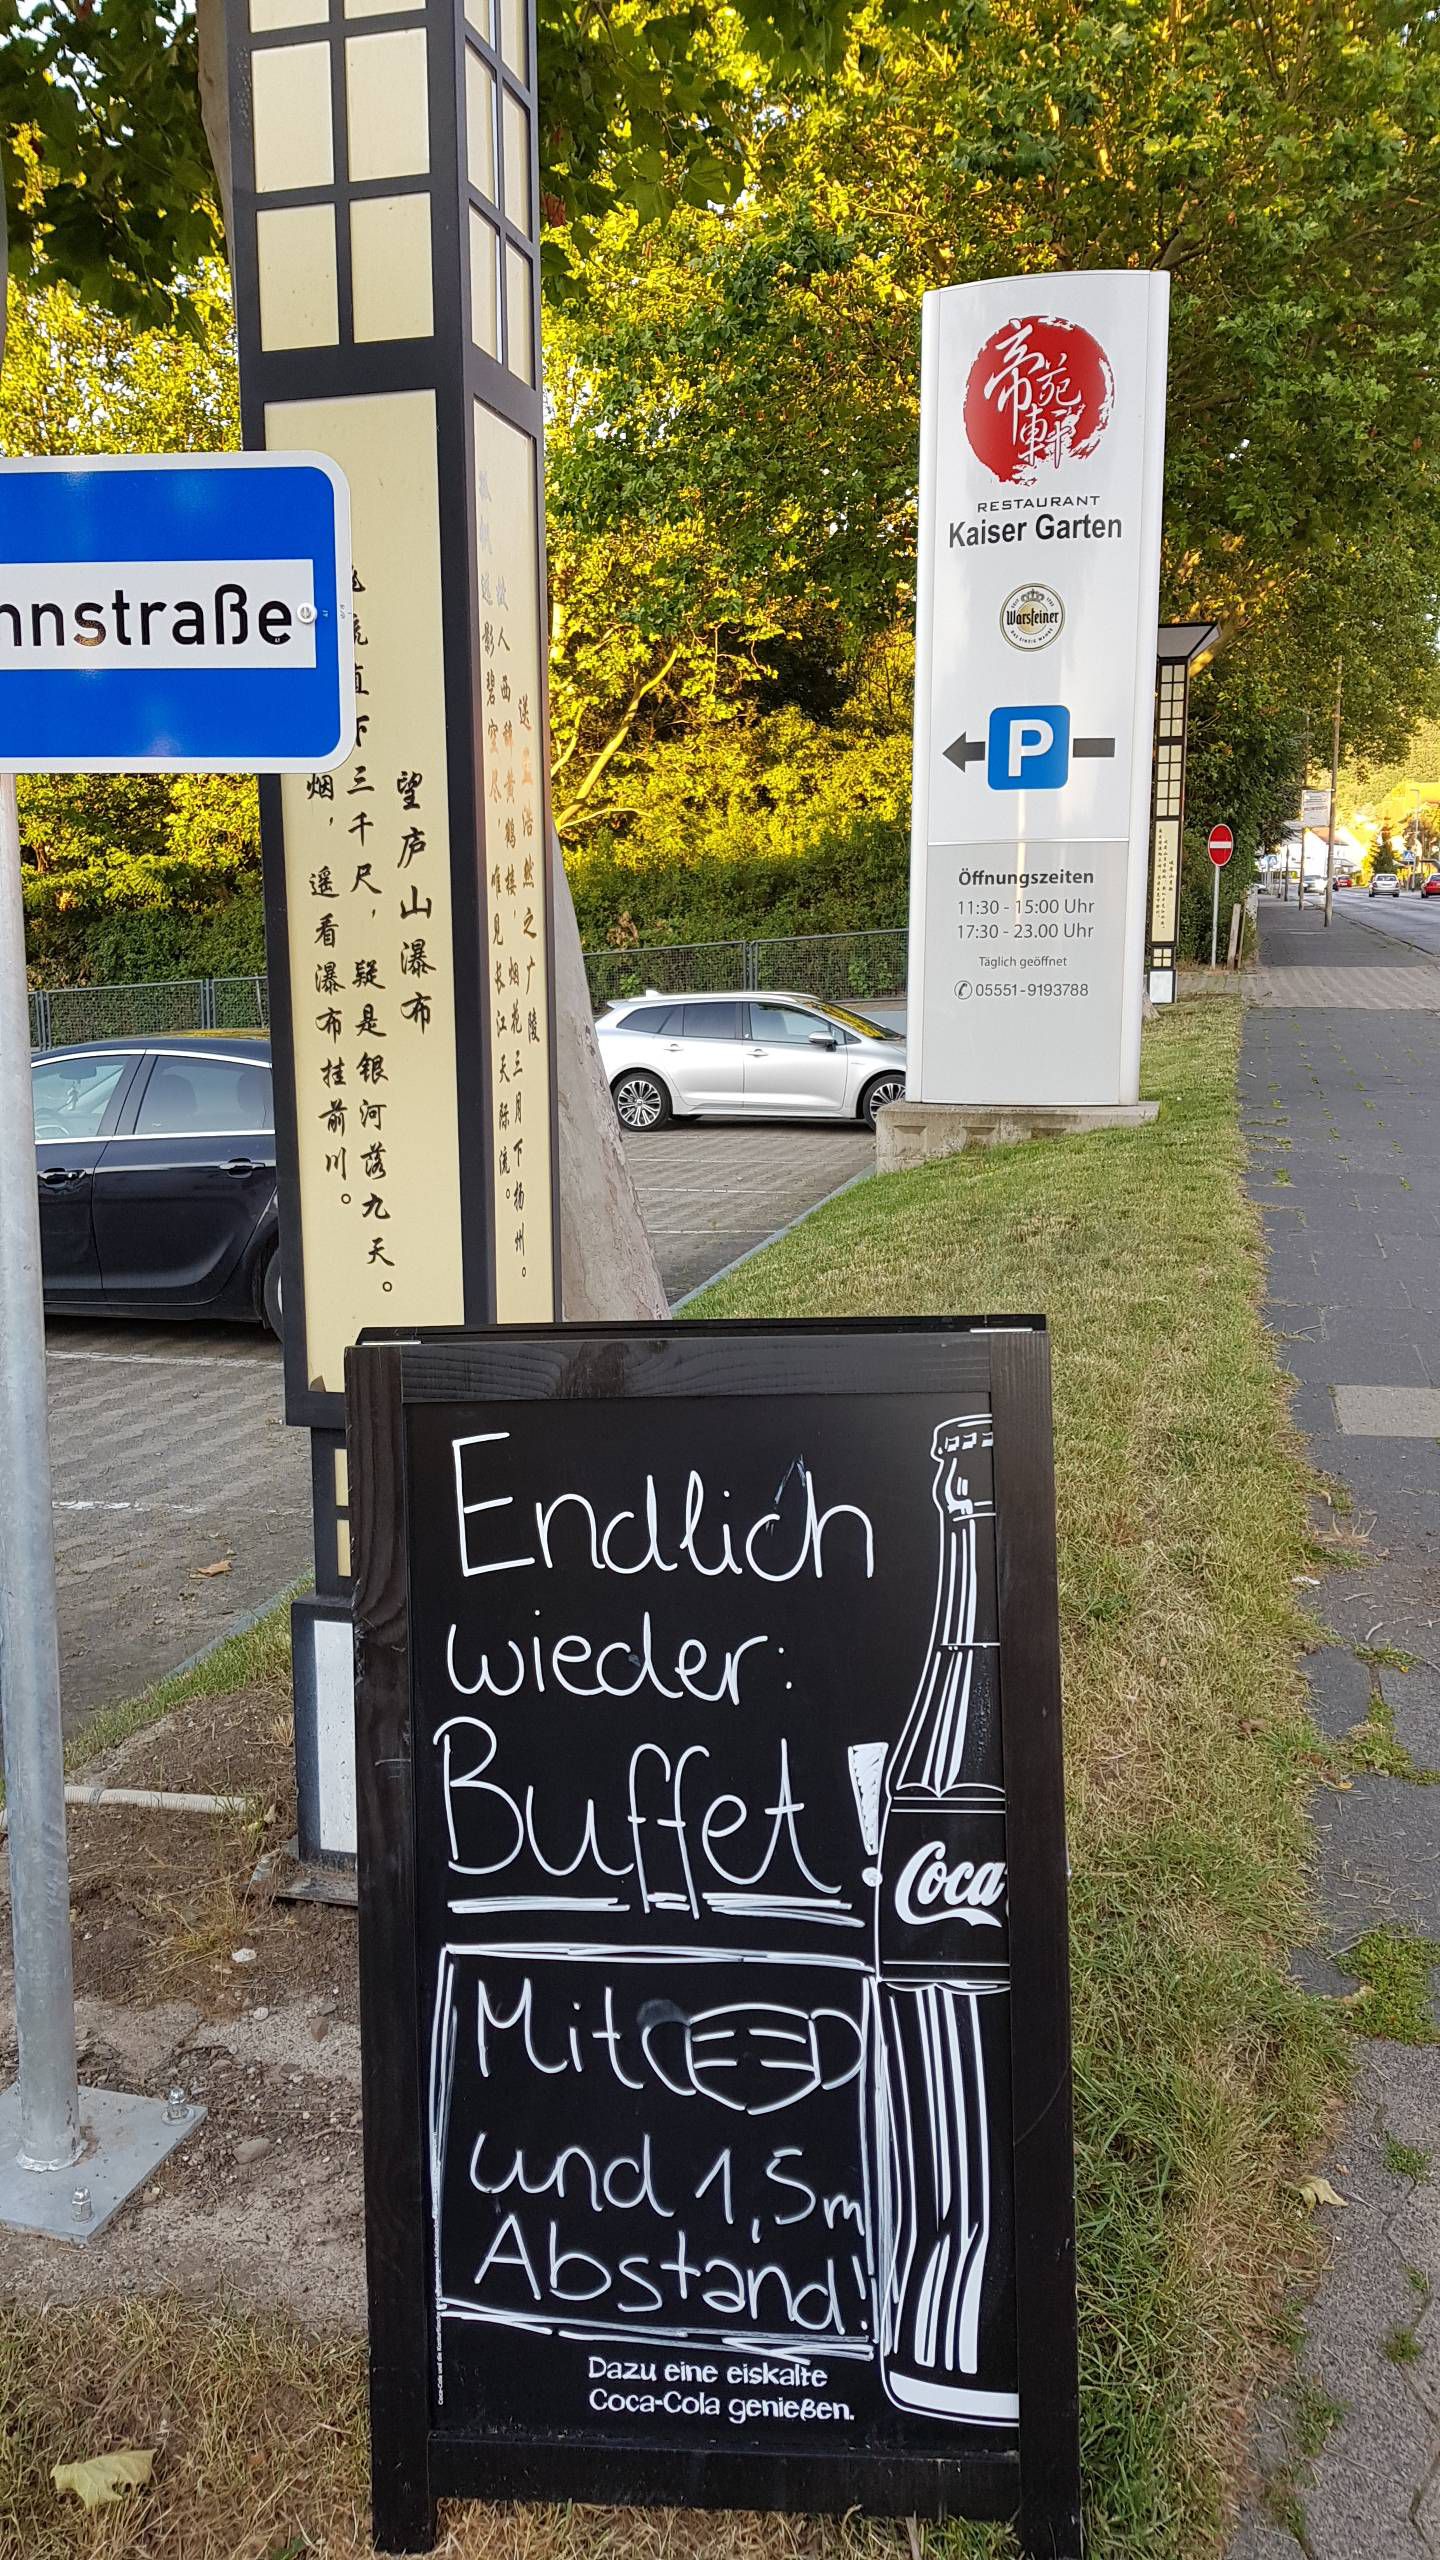 nnstraße
望庐山瀑布
烟，遥看瀑布挂前川。
流直下三千尺，疑是银河落九天。
送孟浩然之广陵
故人西辞黄鹤楼，烟花三月下扬州。
孤帆远影碧空尽，唯见长江天际流。
帝苑軒
RESTAURANT
Kaiser Garten
Warsteiner
P
Öffnungszeiten
11:30 - 15:00 Uhr
17:30 - 23.00 Uhr
Täglich geöffnet
05551-9193788
Endlich
wieder:
Buffet!
Mit
und 1,5m
Abstand!
Coca
Dazu eine eiskalte
Coca-Cola genießen.